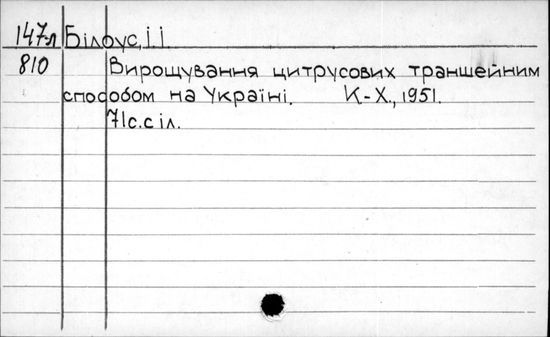 147-л Білоус, І.І.
810 Вирощування цитрусових траншейним
способом на Україні. К-Х., 1951.
71с. с іл.